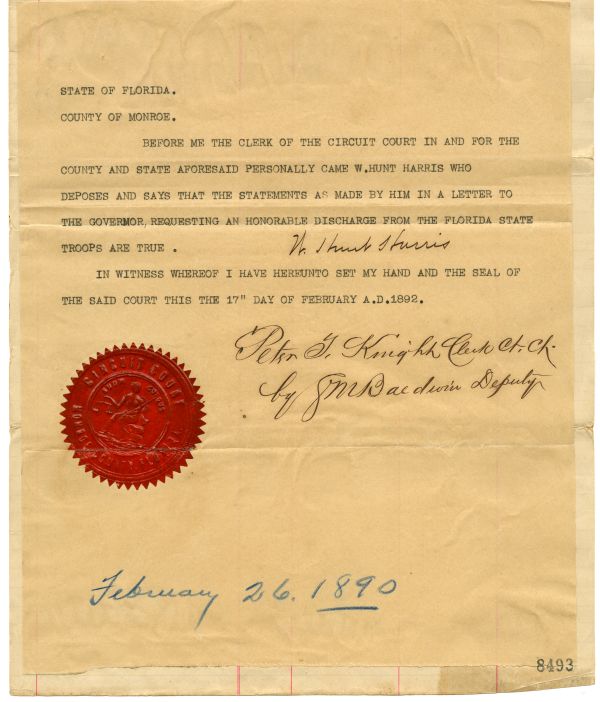 STATE OF FLORIDA.
COUNTY OF MONROE.
BEFORE ME THE CLERK OF THE CIRCUIT COURT IN AND FOR THE
COUNTY AND STATE AFORESAID PERSONALLY CAME W.HUNT HARRIS WHO
DEPOSES AND SAYS THAT THE STATEMENTS AS MADE BY HIM IN A LETTER TO
THE GOVERNOR,REQUESTING AN HONORABLE DISCHARGE FROM THE FLORIDA STATE
TROOPS ARE TRUE .
W. Hunt Harris
IN WITNESS WHEREOF I HAVE HEREUNTO SET MY HAND AND THE SEAL OF
THE SAID COURT THIS THE 17" DAY OF FEBRUARY A.D.1892.
Peter T. Knight Clerk Ct. Ck.
by J M Baldwin Deputy
CIRCUIT COURT
February 26. 1890
8493